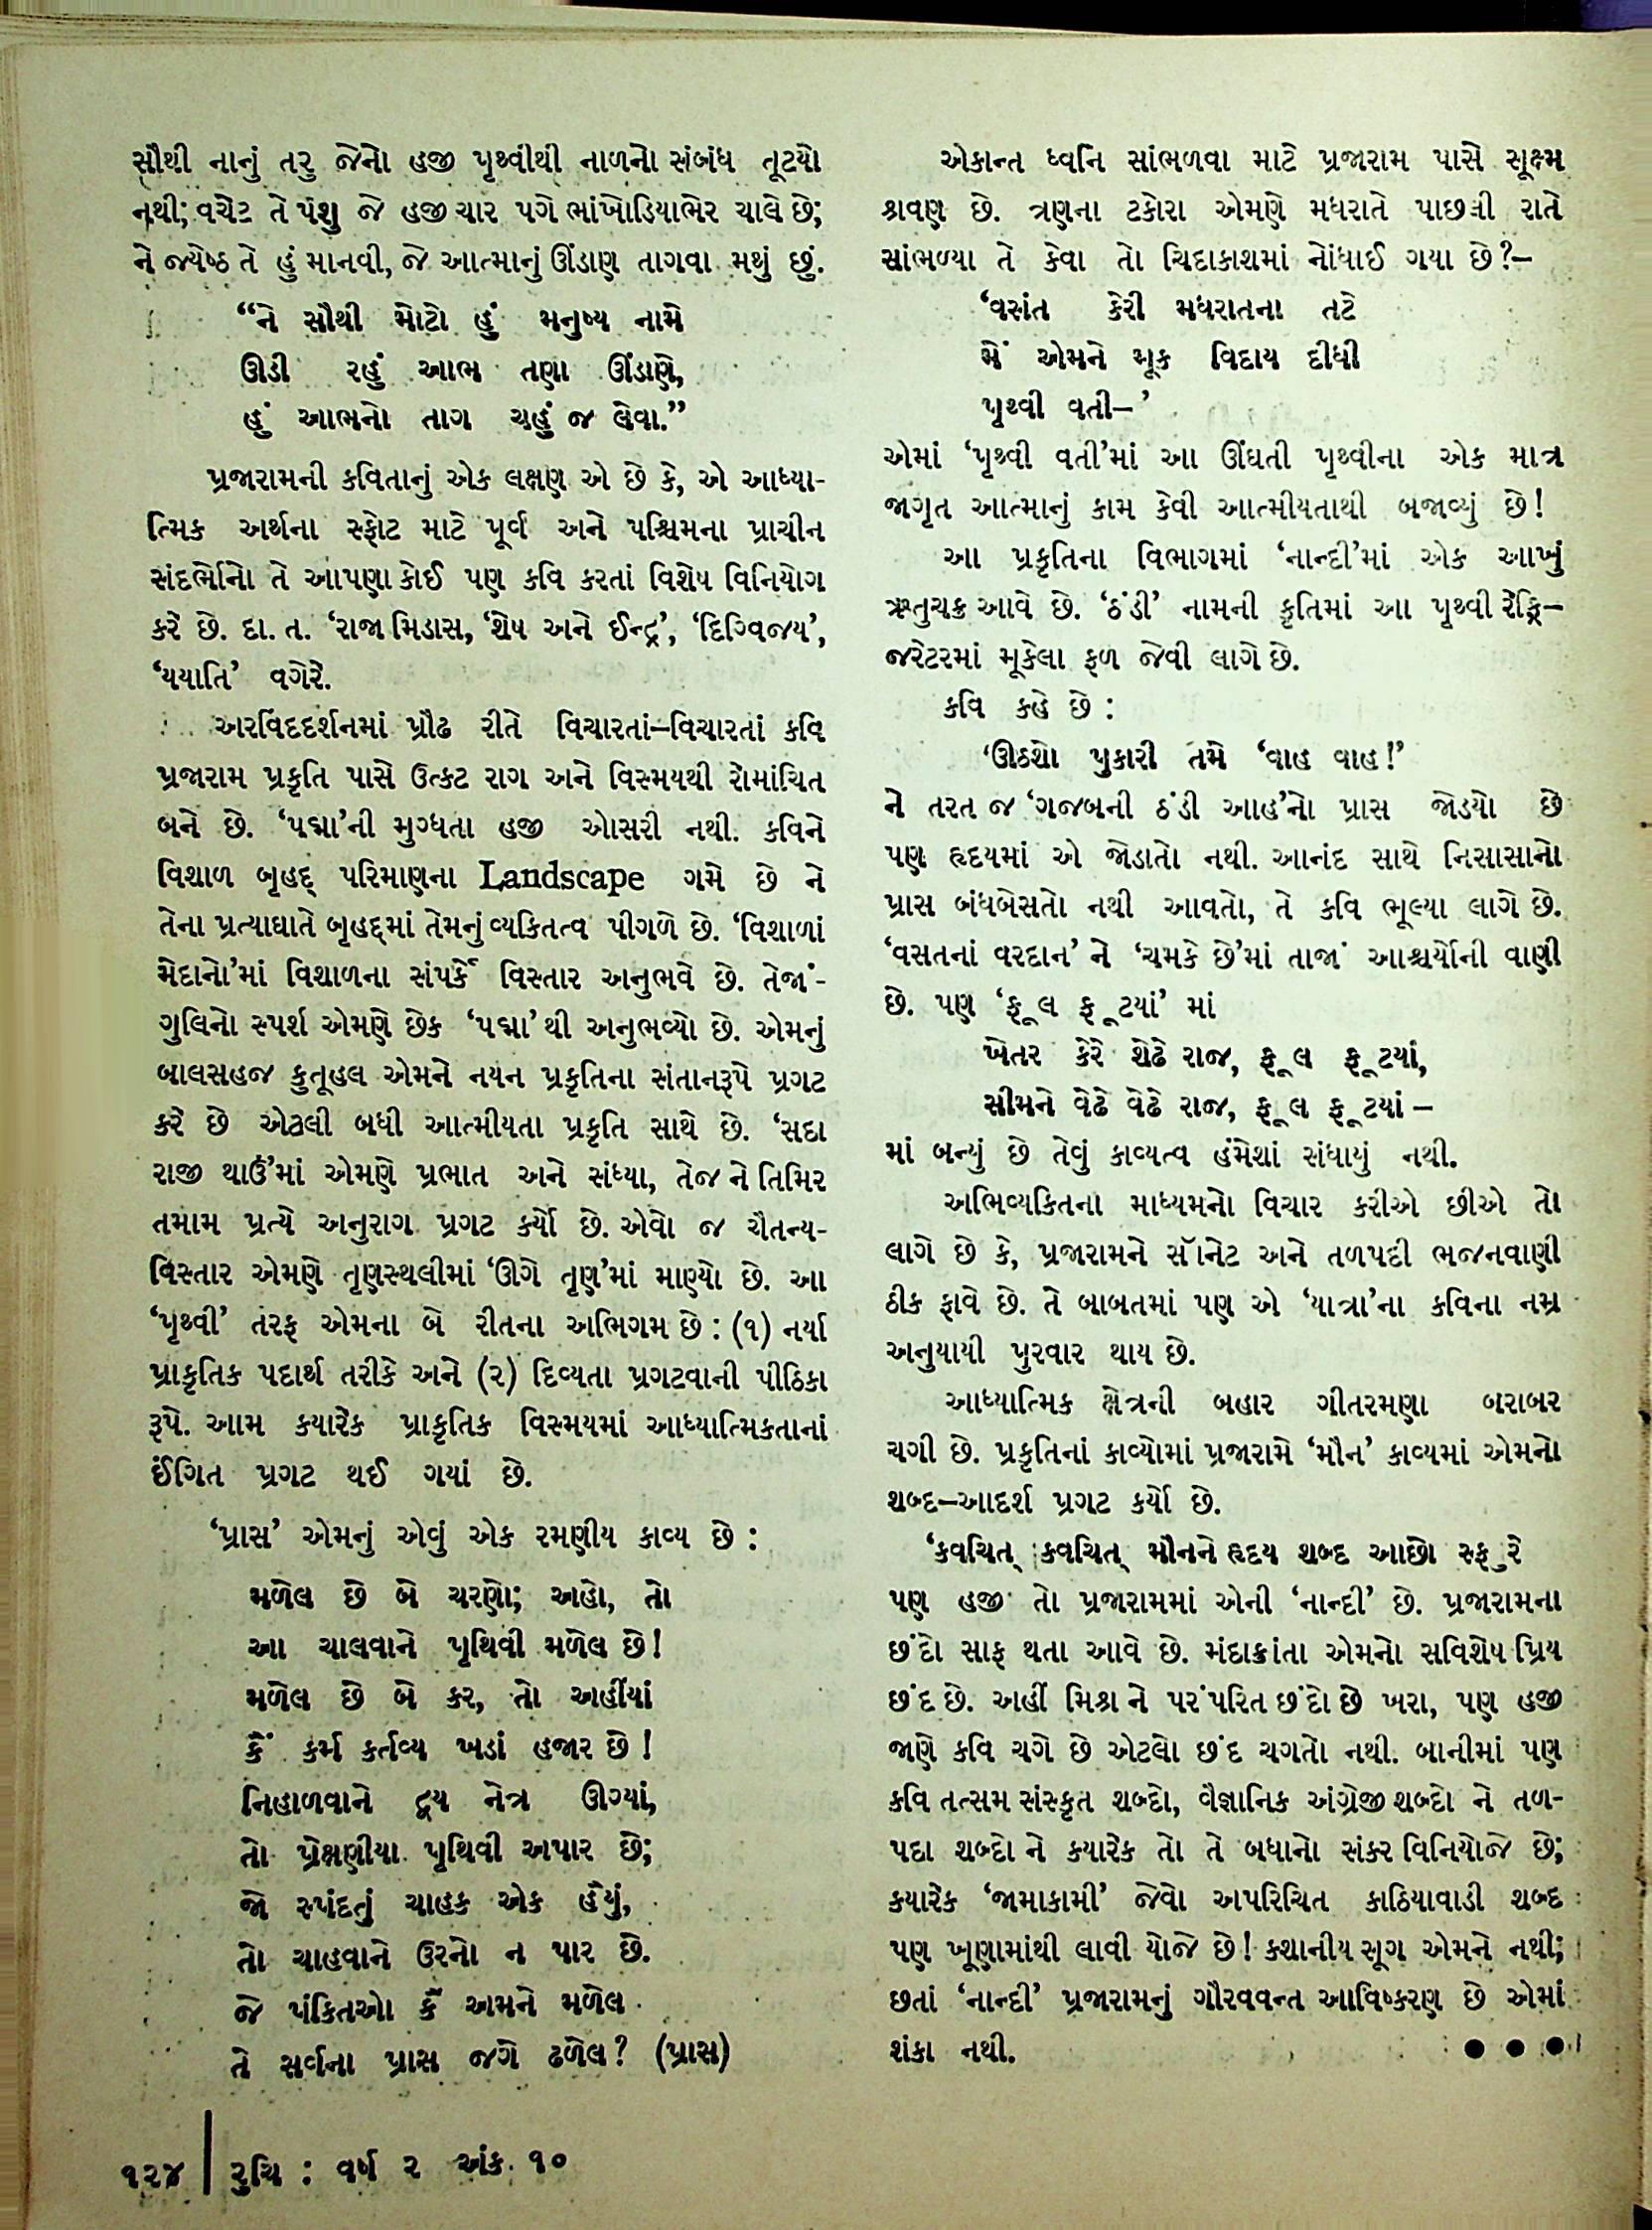 સૌથી નાનું તરુ જેનો હજી પૃથ્વીથી નાળનો સંબંધ તૂટયો
નથી; વચેટ તે પશુ જે હજી ચાર પગે ભાંખોડિયાભેર ચાલે છે;
ને જ્યેષ્ઠ તે હું માનવી, જે આત્માનું ઊંડાણ તાગવા મથું છું.
“ને સૌથી મોટો હું મનુષ્ય નામે
ઊડી રહું આભ તણા ઊંડાણે,
હું આભનો તાગ ચહું જ લેવા.”
પ્રજારામની કવિતાનું એક લક્ષણ એ છે કે, એ આધ્યા-
ત્મિક અર્થના સ્ફોટ માટે પૂર્વ અને પશ્ચિમના પ્રાચીન
સંદર્ભોનો તે આપણા કોઈ પણ કવિ કરતાં વિશેષ વિનિયોગ
કરે છે. દા. ત. ‘રાજા મિડાસ, ‘શેષ અને ઈન્દ્ર’, ‘દિગ્વિજય’,
‘યયાતિ’ વગેરે.
અરવિંદદર્શનમાં પ્રૌઢ રીતે વિચારતાં–વિચારતાં કવિ
પ્રજારામ પ્રકૃતિ પાસે ઉત્કટ રાગ અને વિસ્મયથી રોમાંચિત
બને છે. ‘પદ્મા’ની મુગ્ધતા હજી ઓસરી નથી. કવિને
વિશાળ બૃહદ્ પરિમાણના Landscape ગમે છે ને
તેના પ્રત્યાઘાતે બૃહદ્‌માં તેમનું વ્યકિતત્વ પીગળે છે. ‘વિશાળાં
મેદાનો’માં વિશાળના સંપર્કે વિસ્તાર અનુભવે છે. તેજાં-
ગુલિનો સ્પર્શ એમણે છેક ‘પદ્મા’થી અનુભવ્યો છે. એમનું
બાલસહજ કુતૂહલ એમને નયન પ્રકૃતિના સંતાનરૂપે પ્રગટ
કરે છે એટલી બધી આત્મીયતા પ્રકૃતિ સાથે છે. ‘સદા
રાજી થાઉં’માં એમણે પ્રભાત અને સંધ્યા, તેજ ને તિમિર
તમામ પ્રત્યે અનુરાગ પ્રગટ કર્યો છે. એવો જ ચૈતન્ય-
વિસ્તાર એમણે તૃણસ્થલીમાં ‘ઊગે તૃણ’માં માણ્યો છે. આ
‘પૃથ્વી’ તરફ એમના બે રીતના અભિગમ છે : (૧) નર્યા
પ્રાકૃતિક પદાર્થ તરીકે અને (૨) દિવ્યતા પ્રગટવાની પીઠિકા
રૂપે. આમ કયારેક પ્રાકૃતિક વિસ્મયમાં આધ્યાત્મિકતાનાં
ઈંગિત પ્રગટ થઈ ગયાં છે.
‘પ્રાસ’ એમનું એવું એક રમણીય કાવ્ય છે :
મળેલ છે બે ચરણો; અહો, તો
આ ચાલવાને પૃથિવી મળેલ છે!
મળેલ છે બે કર, તો અહીંયાં
કૈં કર્મ કર્તવ્ય ખડાં હજાર છે!
નિહાળવાને દ્વય નેત્ર ઊગ્યાં,
તો પ્રેક્ષણીયા પૃથિવી અપાર છે;
જો સ્પંદતું ચાહક એક હૈયું,
તો ચાહવાને ઉરનો ન પાર છે.
જે પંકિતઓ કૈં અમને મળેલ
તે સર્વના પ્રાસ જગે ઢળેલ? (પ્રાસ)
એકાન્ત ધ્વનિ સાંભળવા માટે પ્રજારામ પાસે સૂક્ષ્મ
શ્રાવણ છે. ત્રણના ટકોરા એમણે મધરાતે પાછલી રાતે
સાંભળ્યા તે કેવા તો ચિદાકાશમાં નોંધાઈ ગયા છે?–
‘વસંત કેરી મધરાતના તટે
મેં એમને મૂક વિદાય દીધી
પૃથ્વી વતી–’
એમાં ‘પૃથ્વી વતી’માં આ ઊંઘતી પૃથ્વીના એક માત્ર
જાગૃત આત્માનું કામ કેવી આત્મીયતાથી બજાવ્યું છે!
આ પ્રકૃતિના વિભાગમાં ‘નાન્દી’માં એક આખું
ઋતુચક્ર આવે છે. ‘ઠંડી’ નામની કૃતિમાં આ પૃથ્વી રેફ્રિ–
જરેટરમાં મૂકેલા ફળ જેવી લાગે છે.
કવિ કહે છે :
‘ઊઠશો પુકારી તમે ‘વાહ વાહ!’
ને તરત જ ‘ગજબની ઠંડી આહ’નો પ્રાસ જોડયો છે
પણ હૃદયમાં એ જોડાતો નથી. આનંદ સાથે નિસાસાનો
પ્રાસ બંધબેસતો નથી આવતો, તે કવિ ભૂલ્યા લાગે છે.
‘વસતનાં વરદાન’ ને ‘ચમકે છે’માં તાજાં આશ્ચર્યોની વાણી
છે. પણ ‘ફૂલ ફૂટયાં’ માં
ખેતર કેરે શેઢે રાજ, ફૂલ ફૂટયાં,
સીમને વેઢે વેઢે રાજ, ફૂલ ફૂટયાં –
માં બન્યું છે તેવું કાવ્યત્વ હંમેશાં સંધાયું નથી.
અભિવ્યકિતના માધ્યમનો વિચાર કરીએ છીએ તો
લાગે છે કે, પ્રજારામને સૉનેટ અને તળપદી ભજનવાણી
ઠીક ફાવે છે. તે બાબતમાં પણ એ ‘યાત્રા’ના કવિના નમ્ર
અનુયાયી પુરવાર થાય છે.
આધ્યાત્મિક ક્ષેત્રની બહાર ગીતરમણા બરાબર
ચગી છે. પ્રકૃતિનાં કાવ્યોમાં પ્રજારામે ‘મૌન’ કાવ્યમાં એમનો
શબ્દ–આદર્શ પ્રગટ કર્યો છે.
‘કવચિત્ કવચિત્ મૌનને હૃદય શબ્દ આછો સ્ફુરે
પણ હજી તો પ્રજારામમાં એની ‘નાન્દી’ છે. પ્રજારામના
છંદો સાફ થતા આવે છે. મંદાક્રાંતા એમનો સવિશેષ પ્રિય
છંદ છે. અહીં મિશ્ર ને પરંપરિત છંદો છે ખરા, પણ હજી
જાણે કવિ ચગે છે એટલો છંદ ચગતો નથી. બાનીમાં પણ
કવિ તત્સમ સંસ્કૃત શબ્દો, વૈજ્ઞાનિક અંગ્રેજી શબ્દો ને તળ-
પદા શબ્દો ને કયારેક તો તે બધાનો સંકર વિનિયોજે છે;
કયારેક ‘જામાકામી’ જેવો અપરિચિત કાઠિયાવાડી શબ્દ
પણ ખૂણામાંથી લાવી યોજે છે! કશાનીય સૂગ એમને નથી;
છતાં ‘નાન્દી’ પ્રજારામનું ગૌરવવન્ત આવિષ્કરણ છે એમાં
શંકા નથી. ● ● ●
૧૨૪ | રુચિ : વર્ષ ૨ અંક ૧૦